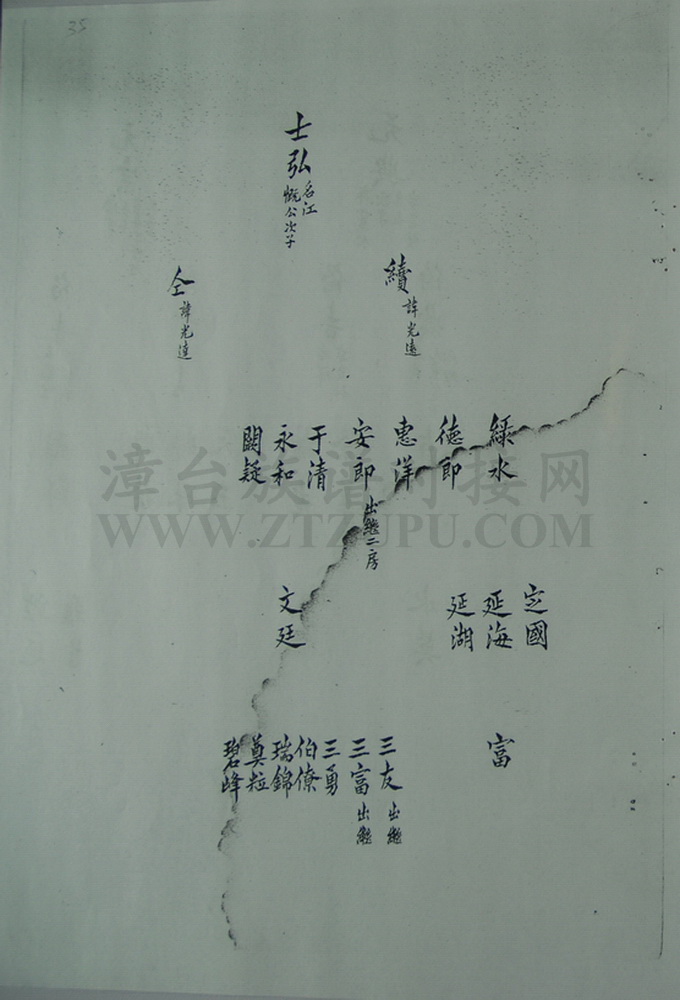 35
士弘 名江
慨公次子
續 諱光遠
仝 諱光達
綠水
德郎
惠洋
安郎 出繼二房
于清
永和
闕疑
定國
延海
延湖
文廷
富
三友 出繼
三富 出繼
三勇
伯僚
瑞錦
奠粒
碧峰
漳台族谱对接网
WWW.ZTZUPU.COM